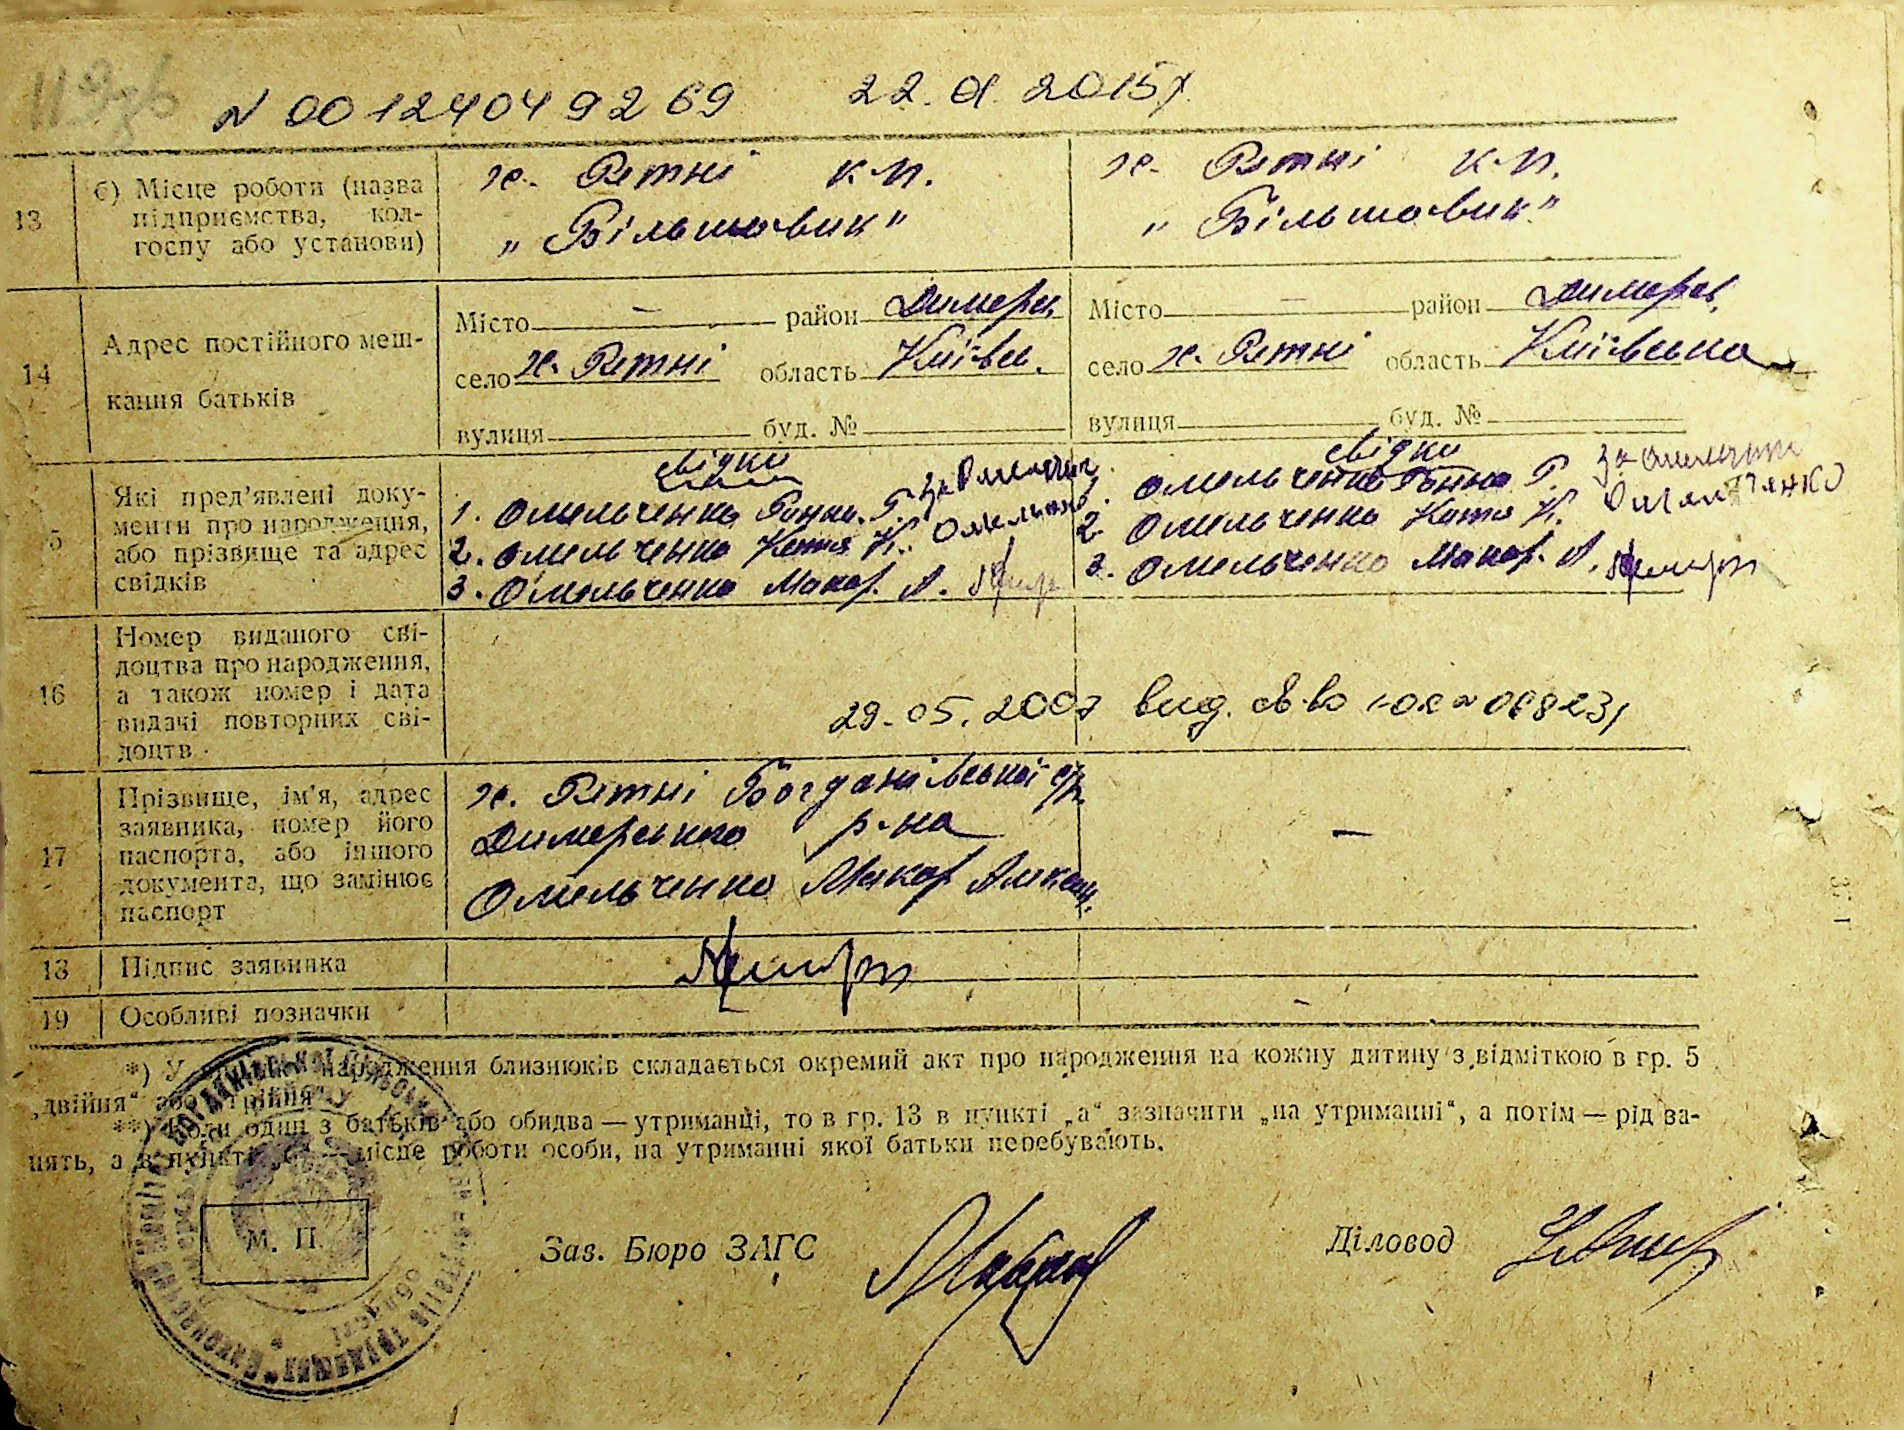 N 00124049269 22.01.2015р.
13 б) Місце роботи (назва підприємства, колгоспу або установи)
х. Ретні к-п. „Більшовик“
х. Ретні к-п. „Більшовик“
14 Адрес постійного мешкання батьків
Місто — район Димерс.
село х. Ретні область Київсь.
вулиця буд. №
Місто — район Димерс.
село х. Ретні область Київська
вулиця буд. №
5 Які пред’явлені документи про народження, або прізвище та адрес свідків
свідки
1. Омельченко Ганна Г.
2. Омельченко Катя К.
3. Омельченко Макар. А.
свідки
Омельченко Ганна Г.
2. Омельченко Катя К.
3. Омельченко Макар. А.
16 Номер виданого свідоцтва про народження, а також номер і дата видачі повторних свідоцтв.
29.05.2007 вид. св-во
17 Прізвище, ім’я, адрес заявника, номер його паспорта, або іншого документа, що замінює паспорт
х. Ретні Богданівської с/р.
Димерського р-на
Омельченко Макар Алексі.
—
18 Підпис заявника
19 Особливі позначки
*) У народження близнюків складається окремий акт про народження на кожну дитину з відміткою в гр. 5
„двійня“ або „трійня“.
**) Коли один з батьків або обидва — утриманці, то в гр. 13 в пункті „а“ зазначити „на утриманні“, а потім — рід за-
нять, а в пункті „б“ — місце роботи особи, на утриманні якої батьки перебувають.
М. П.
Зав. Бюро ЗАГС
Діловод